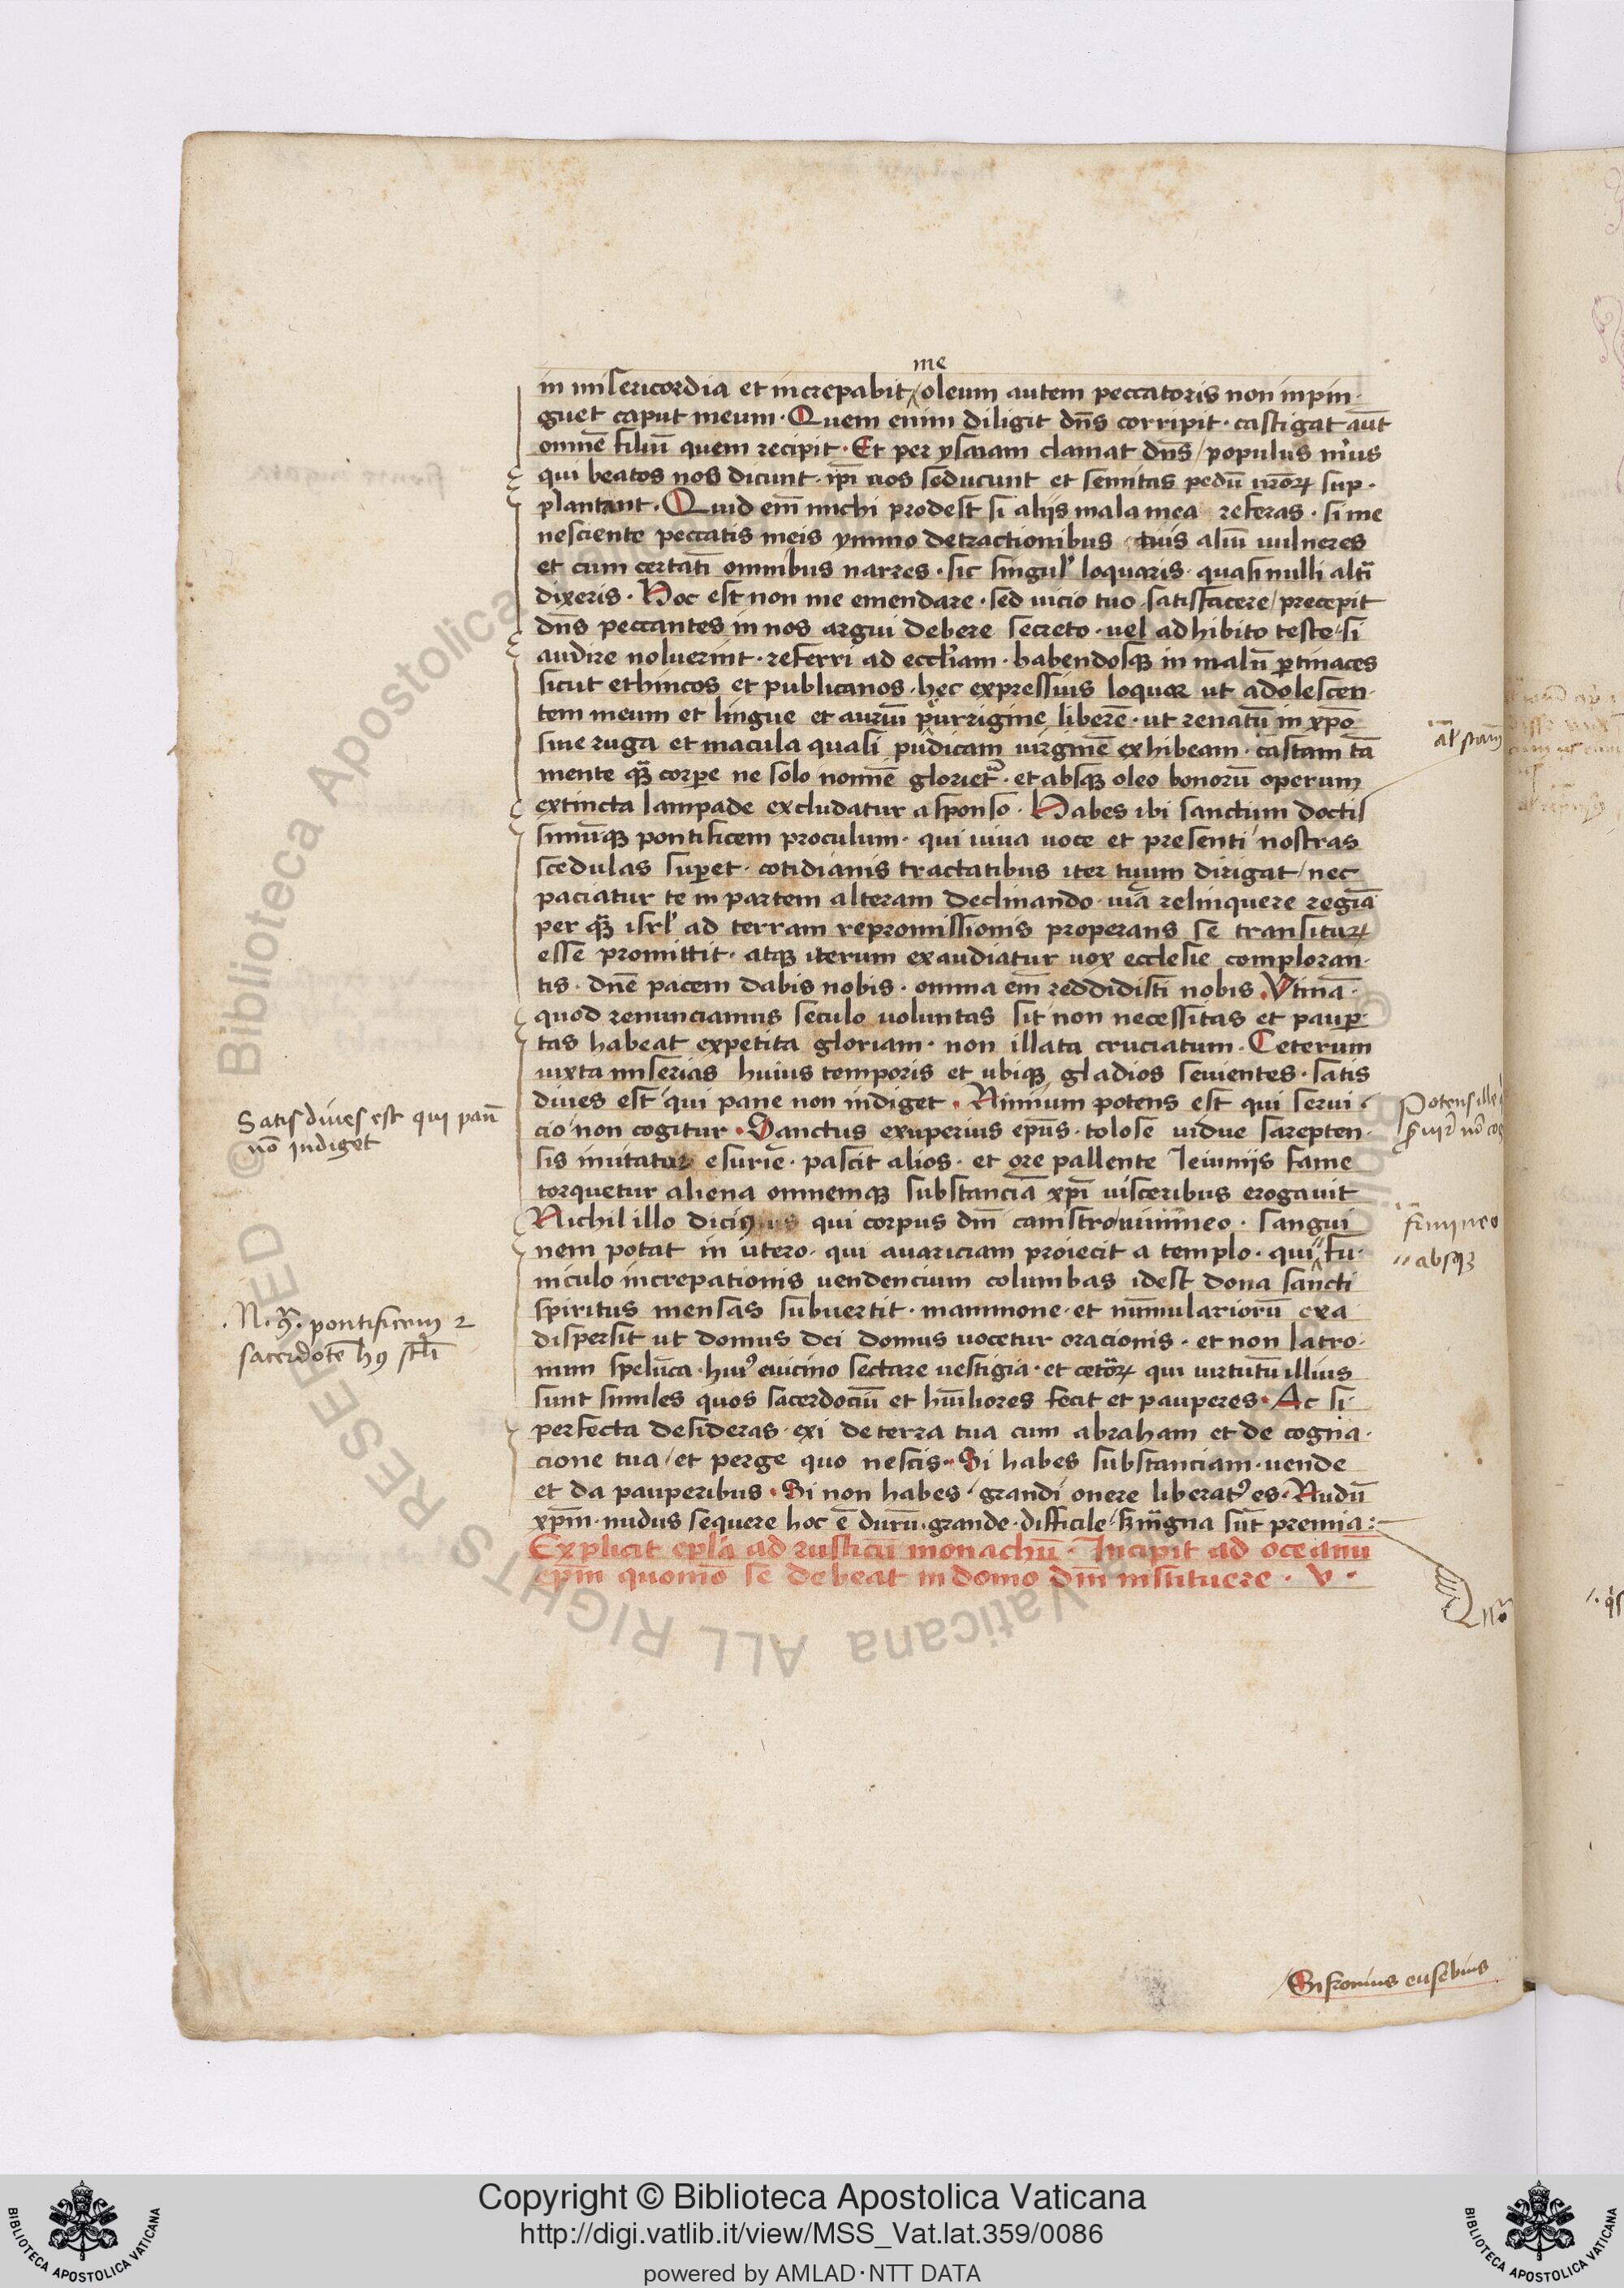 me
in misericordia et increpabit / oleum autem peccatoris non inpin·
guet caput meum · Quem enim diligit dn̄s corripit · castigat aūt
omnē filiū quem recipit · Et per ysaiam clamat dn̄s / populus m̄us
qui beatos nos dicunt · ip̄i uos seducunt et semitas pedū ur̄oꝝ sup·
plantant · Quid em̄ michi prodest si aliis mala mea referas · si me
nesciente peccatis meis ymmo detractionibus tuis aliū uulneres
et cum certatī omnibus narres · sic singul' loquaris · quasi nulli altī
dixeris · Hoc est non me emendare · sed uicio tuo satisfacere / precepit
dn̄s peccantes in nos argui debere secreto · uel adhibito teste / si
audire noluerint · referri ad eccl'iam · habendosqꝫ in malū ꝑtinaces
sicut ethnicos et publicanos · hec expressius loquor ut adolescen·
tem meum et lingue et auriū purrigine liberē · ut renatū in xp̄o
sine ruga et macula quasi pudicam uirginē exhibeam · castam tā
mente qꝫ corꝑe ne solo nomīe glorietᷣ · et absqꝫ oleo bonorū operum
extincta lampade excludatur a sponso · Habes ibi sanctum doctis
simūqꝫ pontificem proculum · qui uiua uoce et presenti nostras
scedulas suꝑet · cotidianis tractatibus iter tuum dirigat / nec
paciatur te in partem alteram declinando · uiā relinquere regiā
per qꝫ isrl' ad terram repromissionis properans se transituꝝ
esse promittit · atqꝫ iterum exaudiatur uox ecclesie comploran·
tis · dn̄e pacem dabis nobis · omnia em̄ reddidisti nobis · Vtinā
quod renunciamus seculo uoluntas sit non necessitas et pauꝑ
tas habeat expetita gloriam · non illata cruciatum · Ceterum
iuxta miserias huius temporis et ubiqꝫ gladios seuientes · satis
diues est qui pane non indiget · Nimium potens est qui serui
cio non cogitur · Sanctus exuperius ep̄us · tolose uidue sarepten·
sis imitator esuriē · pascit alios · et ore pallente Ieiuniis fame
torquetur aliena omnemqꝫ substanciā xp̄i uisceribus erogauit
Nichil illo dicius qui corpus dn̄i canistro uimineo · sangui
nem potat in uitero · qui auariciam proiecit a templo · qui fu·
niculo increpationis uendencium columbas idest dona sancti
spiritus mensas subuertit · mammone · et nūmulariorū era
dispersit ut domus dei domus uocetur oracionis · et non latro·
num spelūca · huiꝰ euicino sectare uestigia · et cet̄oꝝ qui uirtutū illius
sunt similes quos sacerdociū et hūiliores fecit et pauperes · Ac si
perfecta desideras · exi de terra tua cum abraham et de cogna·
cione tua / et perge quo nescis · Si habes substanciam · uende
et da pauperibus · Si non habes · grandi onere liberatꝰ es · Nudū
xp̄m · nudus sequere hoc ē durū · grande · difficile / sꝫ magna sūt premia :
Explicit epl'a ad rusticū monachū · Incipit ad oceanū
ep̄m quom̄o se debeat in domo dn̄i instituere · v ·
al' stam̄
Satis diues est qui pan̄
nō indiget
Potens ille
fimineo
absqꝫ
pontificem
sacerdotē hꝰ scl'i
Sifronius eusebius
Copyright © Biblioteca Apostolica Vaticana
http://digi.vatlib.it/view/MSS_Vat.lat.359/0086
powered by AMLAD·NTT DATA
BIBLIOTECA APOSTOLICA VATICANA
BIBLIOTECA APOSTOLICA VATICANA
© Biblioteca Apostolica Vaticana ALL RIGHTS RESERVED